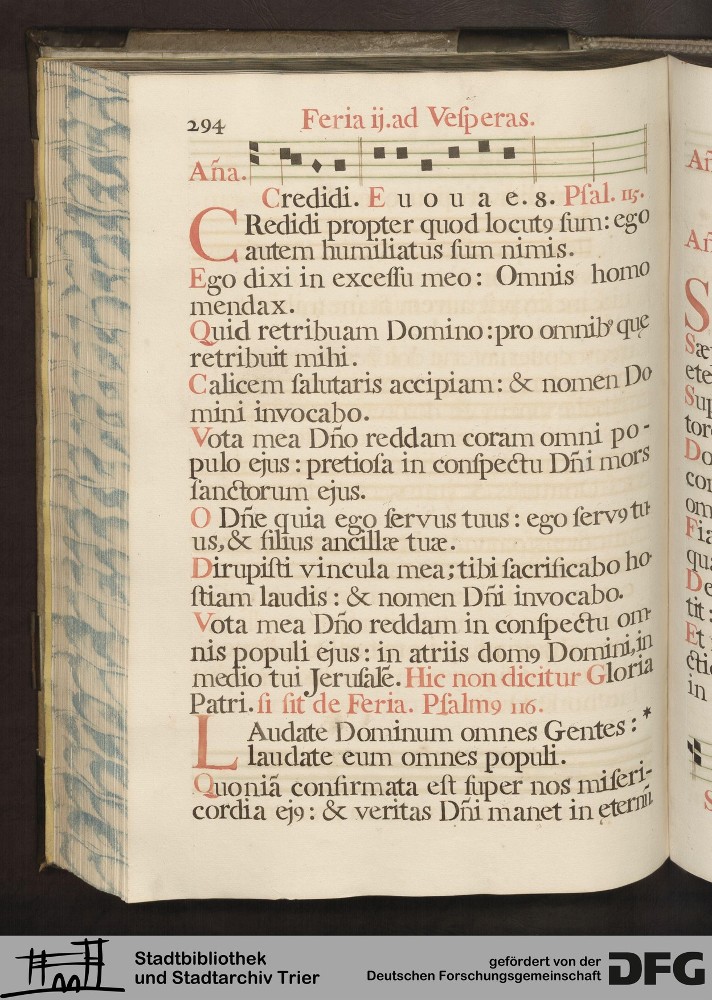 294 Feria ij. ad Veſperas.
Aña.
Credidi. E u o u a e. 8. Pſal. 115.
CRedidi propter quod locut9 ſum: ego
autem humiliatus ſum nimis.
Ego dixi in exceſſu meo: Omnis homo
mendax.
Quid retribuam Domino: pro omnib9 quę
retribuit mihi.
Calicem ſalutaris accipiam: & nomen Do
mini invocabo.
Vota mea Dño reddam coram omni po-
pulo ejus: pretioſa in conſpectu Dñi mors
ſanctorum ejus.
O Dñe quia ego ſervus tuus: ego ſerv9 tu-
us, & filius ancillæ tuæ.
Dirupiſti vincula mea; tibi ſacrificabo ho-
ſtiam laudis: & nomen Dñi invocabo.
Vota mea Dño reddam in conſpectu om-
nis populi ejus: in atriis dom9 Domini, in
medio tui Jeruſalẽ. Hic non dicitur Gloria
Patri. ſi fit de Feria. Pſalm9 116.
LAudate Dominum omnes Gentes: *
laudate eum omnes populi.
Quoniã confirmata eſt ſuper nos miſeri-
cordia ej9: & veritas Dñi manet in ęternũ.
Añ
Añ
S
Sæ
ete
Sup
tor
Do
cor
om
Fia
qua
De
tit:
Et
ctio
in
S
Stadtbibliothek
und Stadtarchiv Trier
gefördert von der
Deutschen Forschungsgemeinschaft
DFG